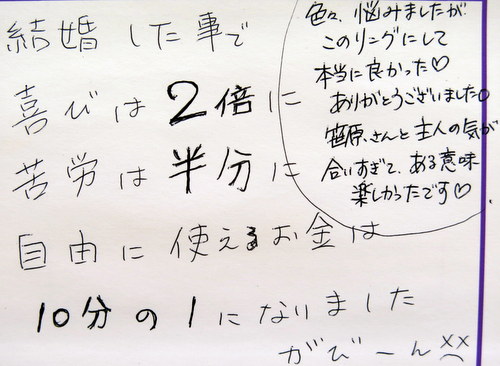 結婚した事で
喜びは2倍に
苦労は半分に
自由に使えるお金は
10分の1になりました
がびーん
色々、悩みましたが
このリングにして
本当に良かった♡
ありがとうございました。
笹原さんと主人の気が
合いすぎて、ある意味
楽しかったです♡